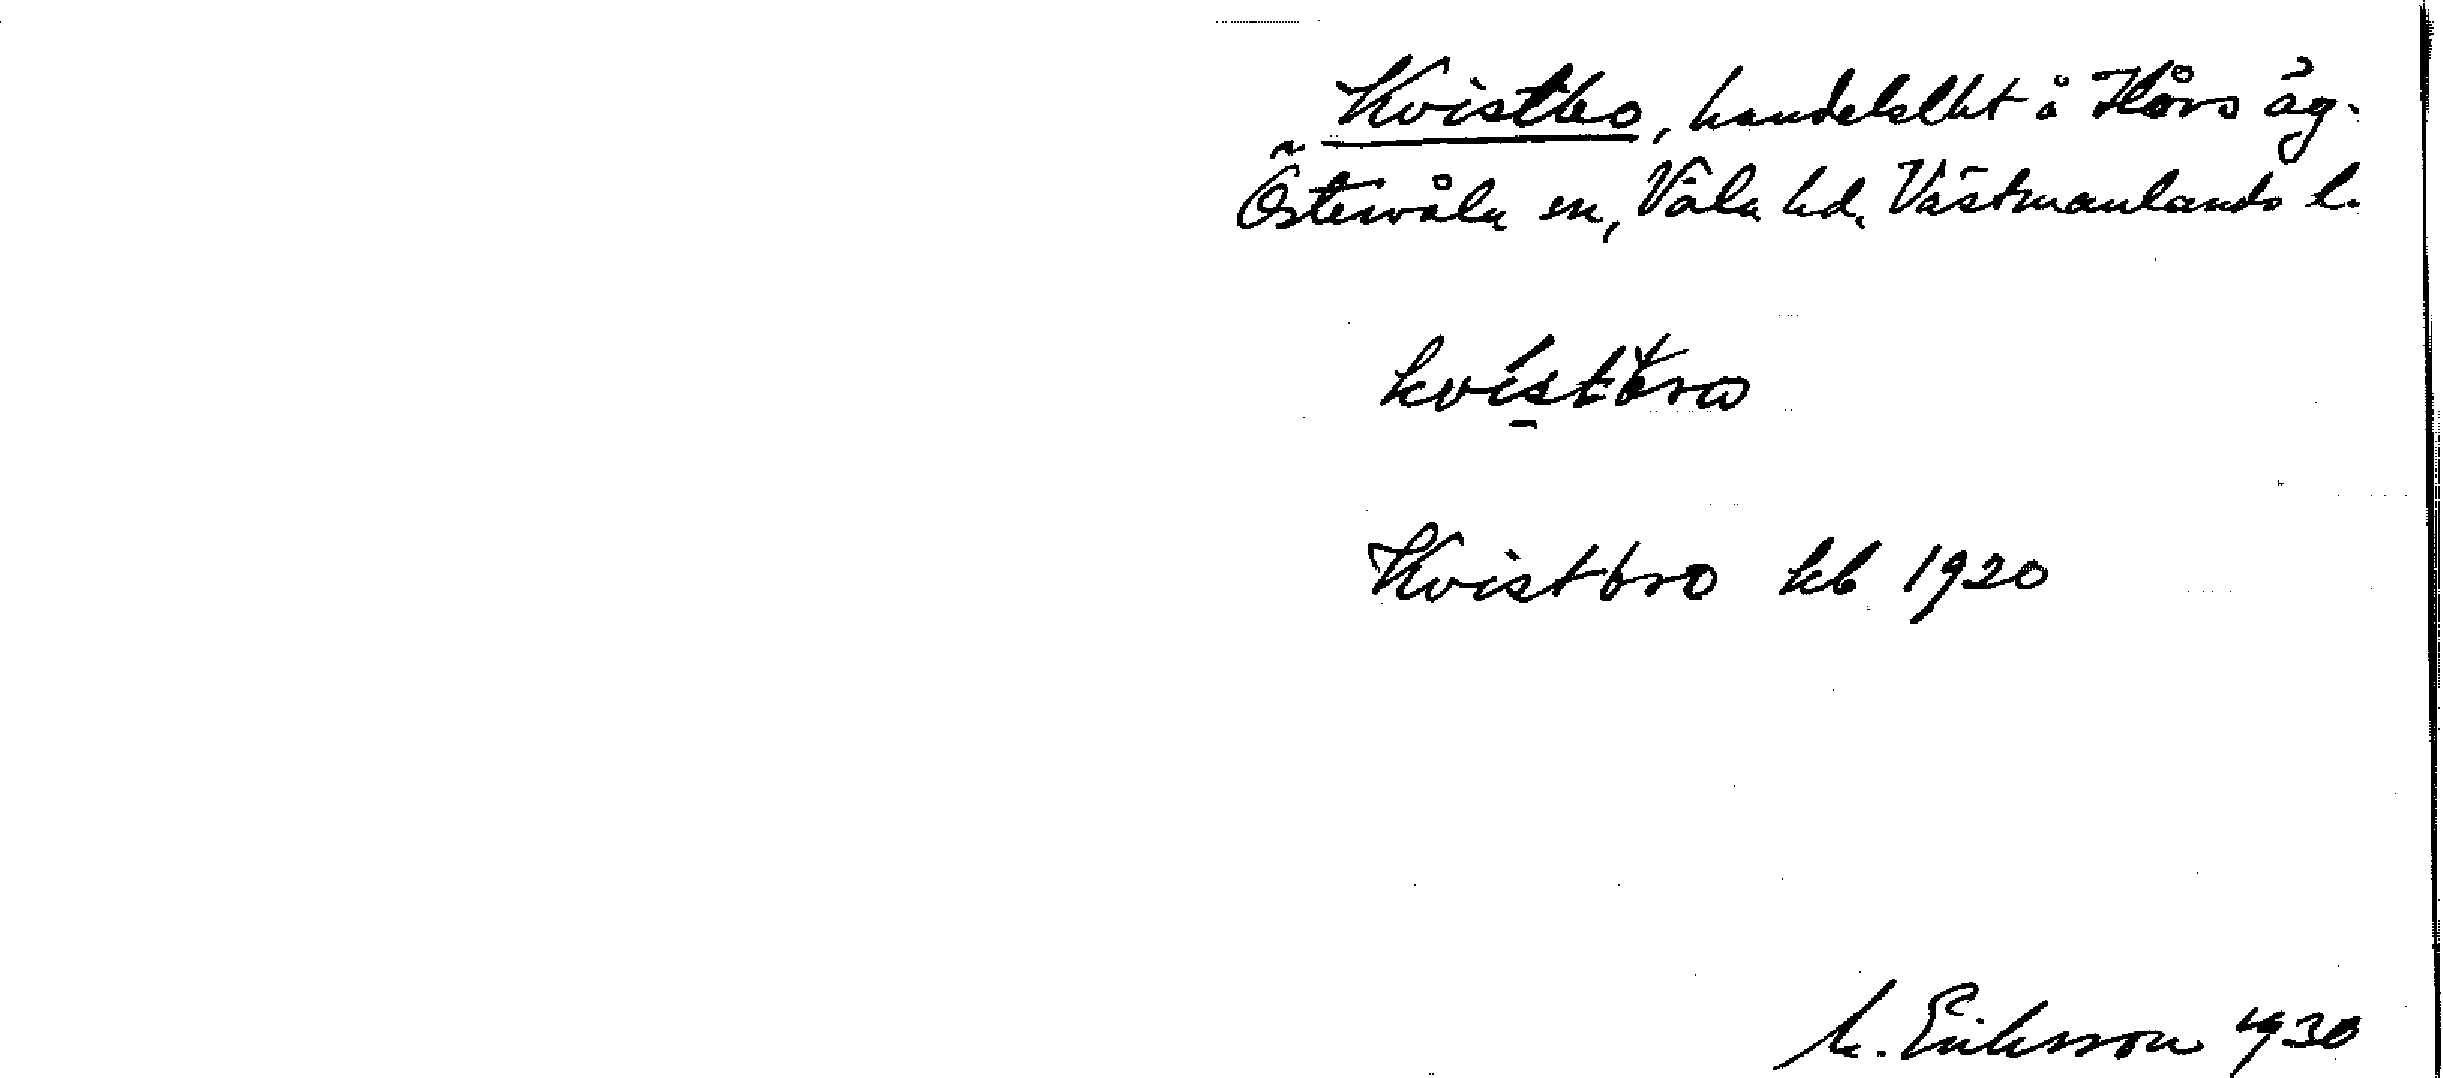 Kvistbo, handelslht å Hårs äg.
Östervåla sn, Våla hd, Västmanlands l.
kvistbro
Kvistbro kb 1920
M. Eriksson 1930